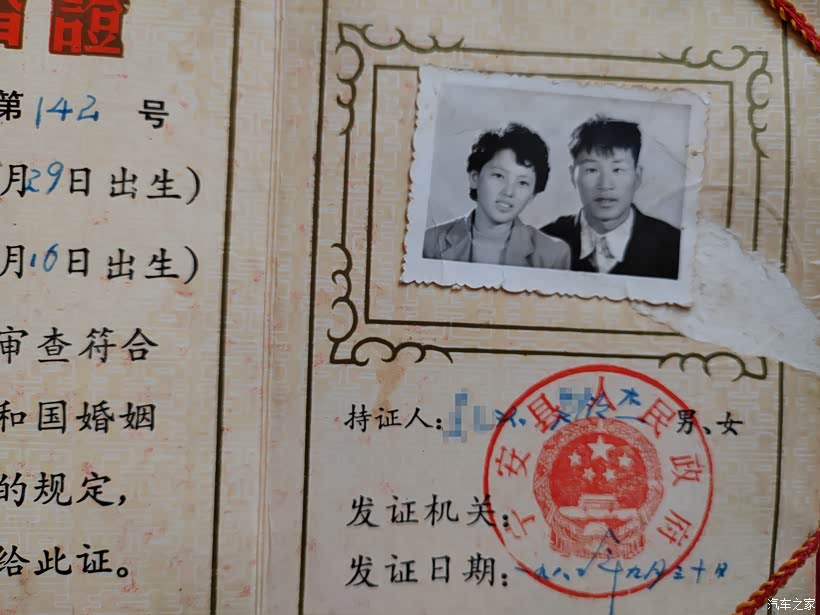 證
第142号
月29日出生)
月16日出生)
审查符合
和国婚姻
的规定,
给此证。
持证人: 男、女
宁安县人民政府
发证机关:
发证日期:一九八〇年九月三十日
汽车之家